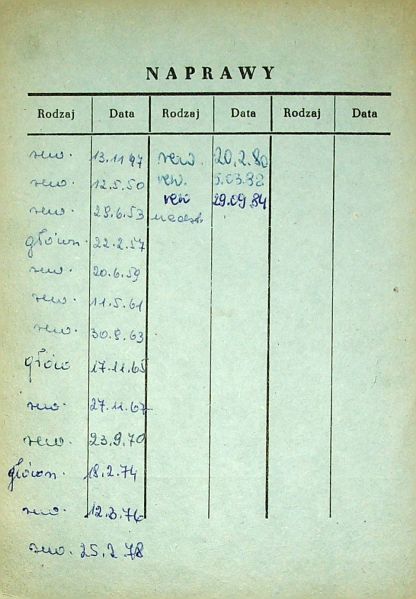 NAPRAWY
Rodzaj Data Rodzaj Data Rodzaj Data
rew. 13.11 47 rew. 20.2.80
rew. 12.5.50 rew. 5.03.82
rew. 29.6.53 rew 29.09.84
główn. 22.2.57
rew. 20.6.59
rew. 11.5.61
rew. 30.8.63
głów 17.11.65
rew. 27.11.67
rew. 23.9.70
główn. 18.2.74
rew. 12.3.76
rew. 25.2 78